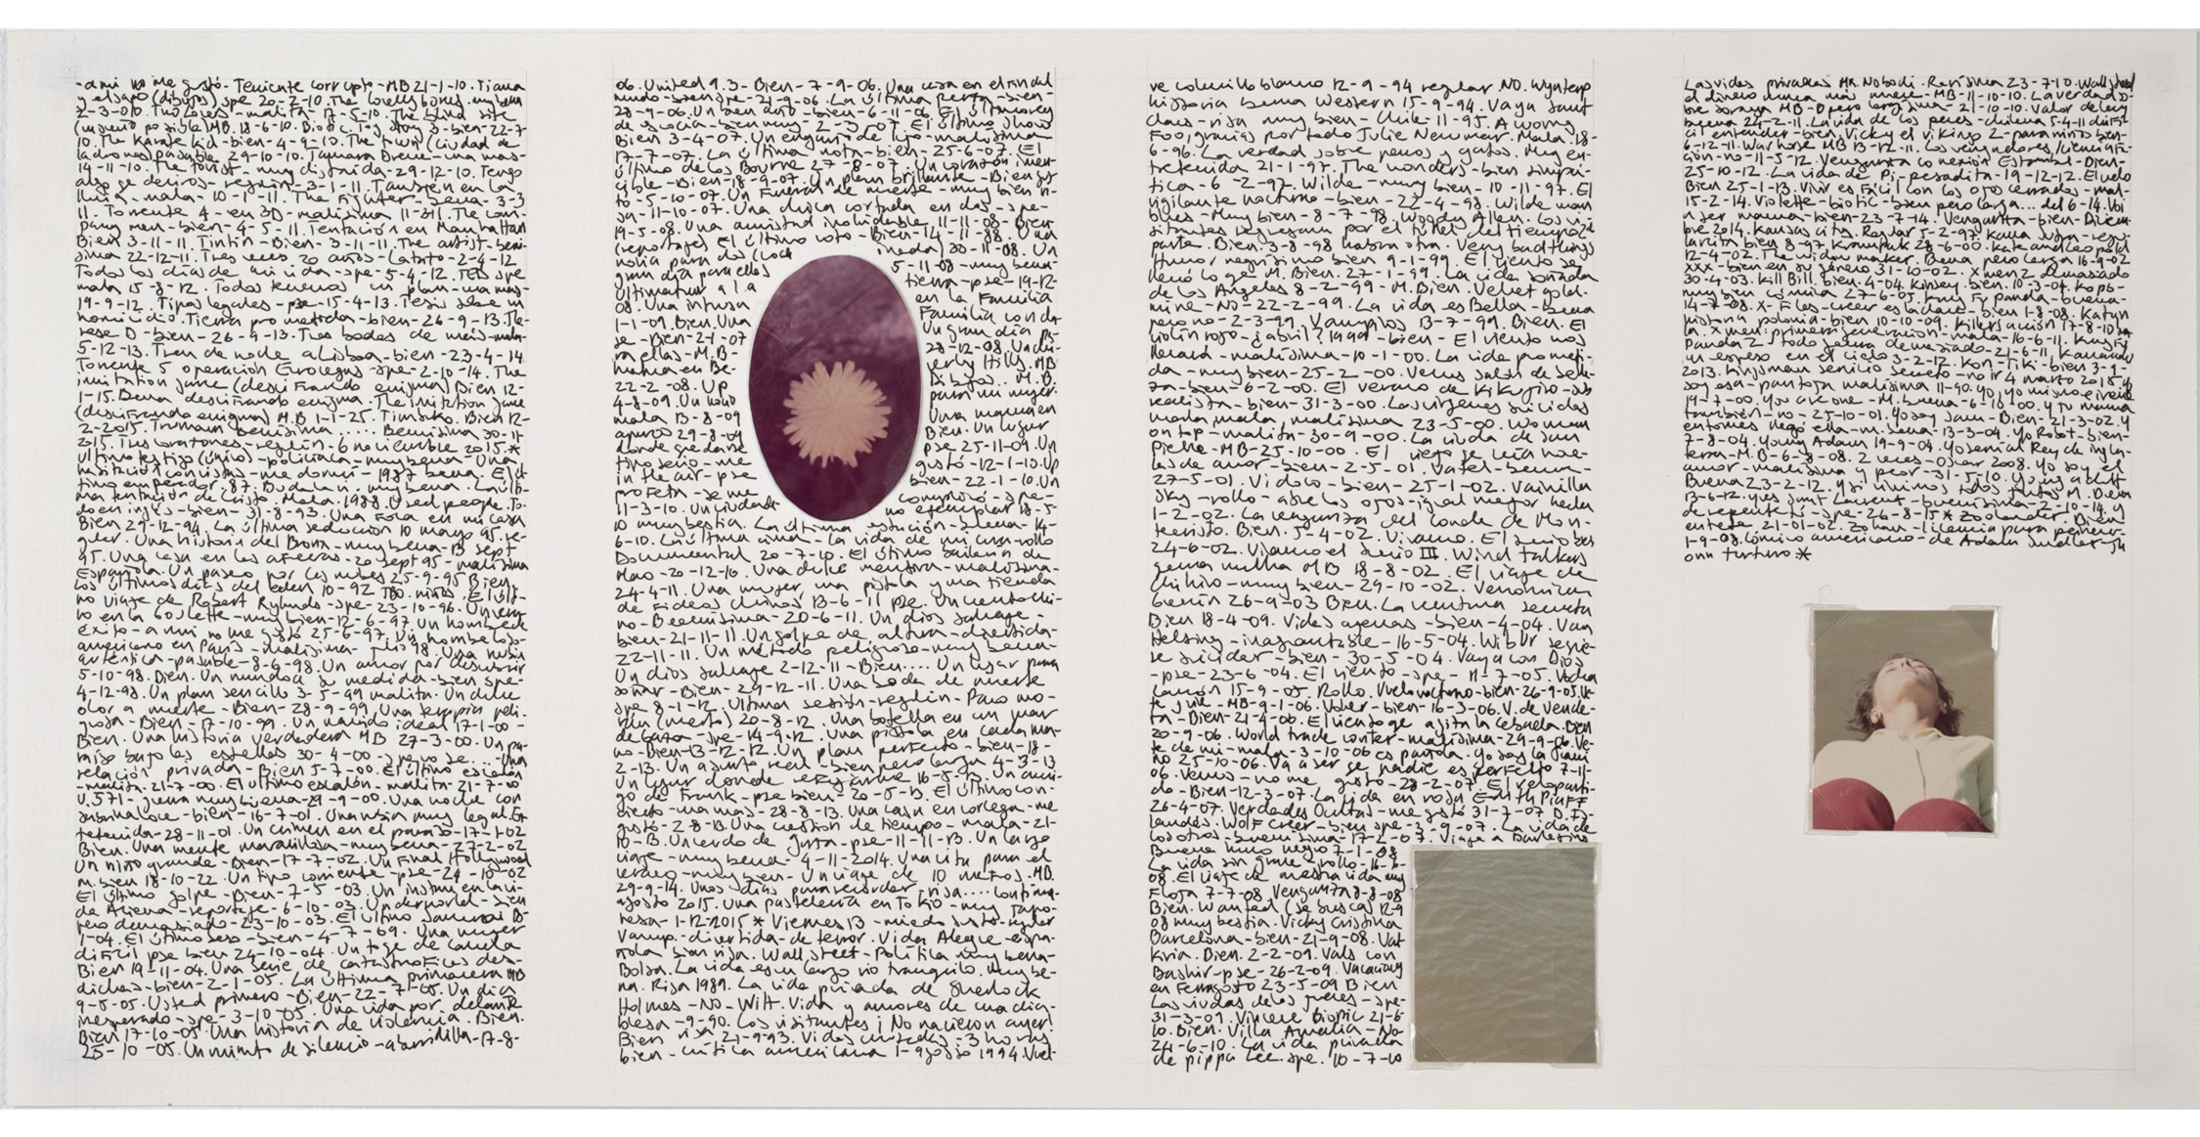 -a mi no me gustó. Teniente corrupto-MB 21-1-10. Tiana
y el sapo (dibujos) spe 20-2-10. The lovely bones. muy bien
2-3-010. Two lovers-malita-17-5-10. The blind site
(inserto posible) MB. 18-6-10. Toy Story 3-bien-22-7-
10. The Karate kid-bien-4-9-10. The Twn (ciudad de
ladrones) pasable 29-10-10. Tamara Drewe-una mas-
14-11-10. The tourist-muy distraida-29-12-10. Tengo
algo qe deciros-regulin-3-1-11. Tambien en la
lluvia-mala-10-1-11. The Fighter-buena-3-3
11. Torrente 4-en 3D-malisima 11-3-11. The com-
pany men-bien-4-5-11. Tentación en Manhattan
Bien 3-11-11. Tintin-Bien-3-11-11. The artist-beni-
sima 22-12-11. Tres veces 20 años-Latoto-2-4-12
Todos los dias de mi vida-spe-5-4-12. Ted spe
mala 15-8-12. Todos tenemos un plan-una mas-
19-9-12. Tipos legales-pse-15-4-13. Tesis sobre un
homicidio. Tierra prometida-bien-26-9-13. The-
rese D-bien-26-9-13. Tres bodas de más-mala-
5-12-13. Tren de noche a Lisboa-bien-23-4-14.
Torrente 5 operación Eurovegas-spe-2-10-14. The
imitation game (descifrando enigma) Bien 12-
1-15. Buena descifrando enigma. The imitation game
(descifrando enigma) M.B 1-1-25. Timbuko. Bien 12-
2-2015. Trumain buenisima..... Buenisima 30-11-
2015. Tres corazones-regulin-6 noviembre 2015.*
ultimo testigo (único)-policiaca-muy buena. Una
habitación con vistas-me dormi-1987 buena. El úl-
timo emperador. 87. Budelaire. muy buena. La últi-
ma tentación de Cristo. Mala. 1988. Used people. To-
do en inglés-bien-31-8-93. Una foca en mi casa
Bien 29-12-94. La última seducción 10 mayo 95. re-
gular. Una historia del Bronx-muy buena-13 sept
95. Una casa en las afueras-20 sept 95-malisima
Española. Un paseo por las nubes 25-9-95 Bien.
Los últimos dias del eden 10-92 TBO. niños. El últi-
mo viaje de Robert Rylands-spe-23-10-96. Un vera-
no en la Goulette-muy bien-12-6-97. Un hombre de
éxito-a mi no me gustó 25-6-97. Un hombre lobo
americano en Paris-malisima-Julio 98. Una rubia
autentica-pasable-8-6-98. Un amor por descubrir
5-10-98. Bien. Un mundo a su medida-bien-spe-
4-12-98. Un plan sencillo 3-5-99 malita. Un dulce
olor a muerte-Bien-28-9-99. Una terapia peli-
grosa-Bien-17-10-99. Un marido ideal 17-1-00-
Bien. Una historia verdadera MB 27-3-00. Un pa-
raiso bajo las estrellas 30-4-00-spe no se... Una
relación privada-Bien 5-7-00. El último escalón
-malita-21-7-00. El último escalón-malita-21-7-00
U.571-guerra muy buena-29-9-00. Una noche con
Sabrina Love-bien-16-7-01. Una rubia muy legal. En
tretenida-28-11-01. Un crimen en el paraiso-17-1-02
Bien. Una mente maravillosa-muy buena-27-2-02
Un niño grande-Bien-17-7-02. Un final Hollywood
m. bien 18-10-22. Un tipo corriente-pse-24-10-02
El último golpe-Bien-7-5-03. Un instituto en la ci-
de Aliena-reportaje-6-10-03. Underworld-bien
pero demasiado-23-10-03. El último Samurai B-
1-04. El último beso-bien-4-7-69. Una mujer
dificil pse bien 24-10-04. Un toqe de canela
Bien 19-11-04. Una serie de catastroficas des-
dichas-bien-2-1-05. La última primavera MB
9-5-05. Usted primero-Bien-22-7-05. Un dia
inesperado-spe-3-10-05. Una vida por delante
Bien 17-10-05. Una historia de violencia. Bien.
25-10-05. Un minuto de silencio-aburridilla-17-8-
06. United 9.3-Bien-7-9-06. Una casa en el fin del
mundo-bien spe-21-9-06. La última puerta-bien-
28-9-06. Un buen año-bien-6-11-06. El último rey
de escocia-bien muy-2-3-07. El último show
Bien 3-4-07. Un engaño de lujo-malisima-
17-7-07. La última nota-bien-25-6-07. El
último de los Bourne 27-8-07. Un corazón inven-
cible-Bien-18-9-07. Un plan brillante-Bien jus-
to-5-10-07. Un funeral de muerte-muy bien ri-
sa-11-10-07. Una chica cortada en dos-spe-
19-5-08. Una amistad inolvidable 11-11-08-Bien
(reportaje) El último voto-Bien-14-11-88. Una
novia para dos (Lock inedas) 30-11-08. Un
gran dia para ellas 5-11-08-muy buena-
Ultimatum a la tierra-pse-19-12-
08. Una intrusa en la Familia
1-1-09. Bien. Una Familia con da
se-Bien-2-1-07 Un gran dia pa-
ra ellas-M.B- 28-12-08. Un chi-
huahua en Be- verly Hills. MB
22-2-08. Up Dibujos.. M.B.
4-8-09. Un novio para mi mujer.
mala 13-8-09 Una mama en
apuros 29-8-09 Bien. Un lugar
donde quedarse pse 25-11-09. Un
tipo serio-me gustó-12-1-10. Up
in the air-pse bien-22-1-10. Un
profeta-se me complicó-spe-
11-3-10. Un ciudadano ejemplar 18-5-
10 muy bestia. La última estación-buena-14-
6-10. La última cima-la vida de mi cura-rollo
Documental 20-7-10. El último bailarin de
Mao-20-12-10. Una dulce mentira-malisima-
24-4-11. Una mujer, una pistola y una tienda
de fideos chinos 13-6-11 pse. Un cuento chi-
no-Beenisima-20-6-11. Un dios salvaje-
bien-21-11-11. Un golpe de altura-divertida-
22-11-11. Un metodo peligroso-muy buena-
Un dios salvaje 2-12-11-Bien.... Un lugar para
soñar-Bien-29-12-11. Una boda de muerte
spe 8-1-12. Ultima sesión-regulin-Paco mo-
ran (muerto) 20-8-12. Una botella en un mar
de Gaza-spe-14-9-12. Una pistola en cada ma-
no-Bien-13-12-12. Un plan perfecto-bien-18-
2-13. Un asunto real-bien pero larga 4-3-13
Un lugar donde refugiarse 16-5-13. Un ami-
go de Frank-pse bien-20-5-13. El último con-
cierto-una mas-28-8-13. Una casa en corcega-me
gustó-2-8-13. Una cuestion de tiempo-mala-21-
10-13. Un cerdo de Gaza-pse-11-11-13. Un largo
viaje-muy buena-4-11-2014. Una cita para el
verano-muy bien-Un viaje de 10 metros. MB.
29-9-14. Unos dias para recordar-risa....
agosto 2015. Una pasteleria en Tokio-muy japo-
nesa-1-12-2015 * Viernes 13-miedo susto-regular
Vamp.-divertida-de terror. Vida Alegre-espa-
ñola bien risa. Wall street-Politica muy buena-
Bolsa. La vida es un largo rio tranquilo. muy be-
na. Risa 1989. La vida privada de Sherlock
Holmes-NO-Wilt. Vida y amores de una dia-
blesa-9-90. Los visitantes ¡No nacieron ayer!
Bien risa 21-9-93. Vidas cruzadas-3 horas
bien-critica americana 1-agosto 1994. Vuel-
ve colmillo blanco 12-9-94 regular NO. Wynterp
historia buena Western 15-9-94. Vaya Sant
claus-risa muy bien-chile-11-95. A wong
Foo, gracias por todo Julie Newmar. Mala. 18-
6-96. La verdad sobre perros y gatos. Muy en-
tretenida 21-1-97. The wonders-bien simpa-
tica-6-2-97. Wilde-muy bien-10-11-97. El
vigilante nocturno-bien-22-4-98. Wilde man
blues-Muy bien-8-7-98. Woody Allen. Los vi-
sitantes regresan por el túnel del tiempo 2
parte. Bien. 3-8-98 habra otra. Very bad things
Humor negrisimo bien 9-1-99. El viento se
llevó lo qe M. Bien. 27-1-99. La vida soñada
de los Angeles 8-2-99-M.Bien. Velvet gold-
mine-NO-22-2-99. La vida es Bella-buena
pero no-2-3-99. Vampiros 13-7-99. Bien. El
violin rojo-¿abril? 1999-bien-El viento nos
llevará-malisima-10-1-00. La vida prometi-
da-muy bien-25-2-00. Venus salón de belle-
za-bien-6-2-00. El verano de Kikujiro-sub
realista-bien-31-3-00. Las virgenes suicidas
mala mala, malisima 23-5-00. Woman
on top-malita-30-9-00. La viuda de San
Pierre-MB-25-10-00. El viejo qe leia nove-
las de amor-bien-2-5-01. Vatel-buena-
27-5-01. Vidocq-bien-25-1-02. Vainilla
Sky-rollo-abre los ojos-igual mejor nada
1-2-02. La venganza del Conde de Mon-
tecristo. Bien. 5-4-02. Visamo. El senio bes
24-6-02. Visamo el Senio III. Wind talkers
guerra mucha MB 18-8-02. El viaje de
Chihiro-muy bien-29-10-02. Veronica
Guerin 26-9-03 Bien. La ventana secreta
Bien 18-4-09. Vidas agenas-bien-4-04. Van
Helsing-inaguantable-16-5-04. Wilbur se qie-
re suicidar-bien-30-5-04. Vaya con Dios
-pse-23-6-04. El viento-spe-11-7-05. Vodka
Lemon 15-9-05. Rollo. Vuelo nocturno-bien-26-9-05. Ve-
te y vive-MB-15-10-05. Volver-bien-16-3-06. V. de Vende-
ta-Bien-21-4-06. El viento qe agita la cebada. Bien
20-9-06. World trade center-malisima-29-9-06. Ve-
te de mi-mala-3-10-06 española. Yo soy la Juani
no 25-10-06. Va a ser qe nadie es perfecto 7-11-
06. Venus-no me gustó-28-2-07. El velo pinta-
do-Bien-12-3-07. La vida en rosa Edith Piaff
26-4-07. Verdades Ocultas-me gustó 31-7-07 D. Ir-
landés. Wolf Creer-bien spe-3-9-07. La vida de
los otros-buenisima-17-2-07. Viaje a Darjeeling
Buena humor negro 7-1-08
La vida sin Grace-rollo-16-5-
08. El viaje de nuestra vida muy
Floja 7-7-08 Venganza 8-8-08
Bien. Wanted (se busca) 12-9
08 muy bestia. Vicky Cristina
Barcelona-bien-21-9-08. Val
kiria. Bien. 2-2-09. Vals con
Bashir-pse-26-2-09. Vacaciones
en Ferragosto 23-5-09 Bien
Las viudas de los jueves-spe-
31-3-01. Vincere Biopic 21-6-
10. Bien. Villa Amalia-No-
24-6-10. La vida privada
de pippa Lee. spe. 10-7-10
Las vidas privadas Mr. Nobodi. Rarisima 23-7-10. Wall street
el dinero nunca mas duerme-MB-11-10-10. La verdad so-
bre Soraya MB-O pero larguisima-21-10-10. Valor de ley
buena 24-2-11. La vida de los peces-chilena 5-4-11 difi-
cil entender-bien. Vicky el vikingo 2-para niños bien-
6-12-11. War horse MB 13-12-11. Los vengadores/ciencia fi-
ción-no-11-5-12. Venganza conexión Estambul-Bien-
25-10-12. La vida de Pi-pesadita-19-12-12. El vuelo
Bien 25-1-13. Vivir es fácil con los ojos cerrados-mal-
15-2-14. Violette-biotic-bien pero larga... del 6-14. Voi
a ser mama-bien-23-7-14. Venganza-bien-Diciem-
bre 2014. Kansas city. Regular 5-2-97. Kama Sutra-regu-
larcita bien 8-97. Krampak 28-6-00. Kate and Leopold
12-4-02. The widow maker. Buena pero larga 16-9-02
xxx-bien en su género 31-10-02. X men 2 demasiado
30-4-03. Kill Bill. bien-4-04. Kinsey. bien. 10-3-04. Kops-
muy bien cómica 27-6-05. Kung Fu panda-buena-
14-7-08. X-Files-creer es la clave-bien 1-8-08. Katyn
historia polonia-bien 10-10-09. Killers acción 17-8-10 ma
la. X men: primera generación-mala-16-6-11. Kung Fu
Panda 2/todo guerra demasiado-21-6-11. Kauwboy
un espeso en el cielo 3-2-12. Kon-Tiki-bien-3-1-
2013. Kingsman servicio secreto-no ir 4 marzo 2015 yo
soy esa-pantoja malisima 11-90. Yo, yo mismo e irene
19-7-00. You are one-M. buena-6-10-00. y tu mamá
tambien-no-25-10-01. Yo soy Sam-Bien-21-3-02. y
entonces llegó ella-m. buena-13-3-04. Yo Robot-bien-
7-8-04. Young Adam 19-9-04. Yo serial Rey de ingla-
terra-M.B-6-8-08. 2 veces-Oscar 2008. Yo soy el
amor-malisima y peor-31-5-10. Young adult
Buena 23-2-12. Y si vivimos todos juntos M. Buena
13-6-12. yves saint Laurent-buenisima-2-10-14. y
de repente tu-spe-26-8-15 * Zoolander. Bien
entreten. 21-01-02. Zohan-licencia para peinar-
1-9-08. Cómico americano-de Adam Sandler-Jh
onn turturo *